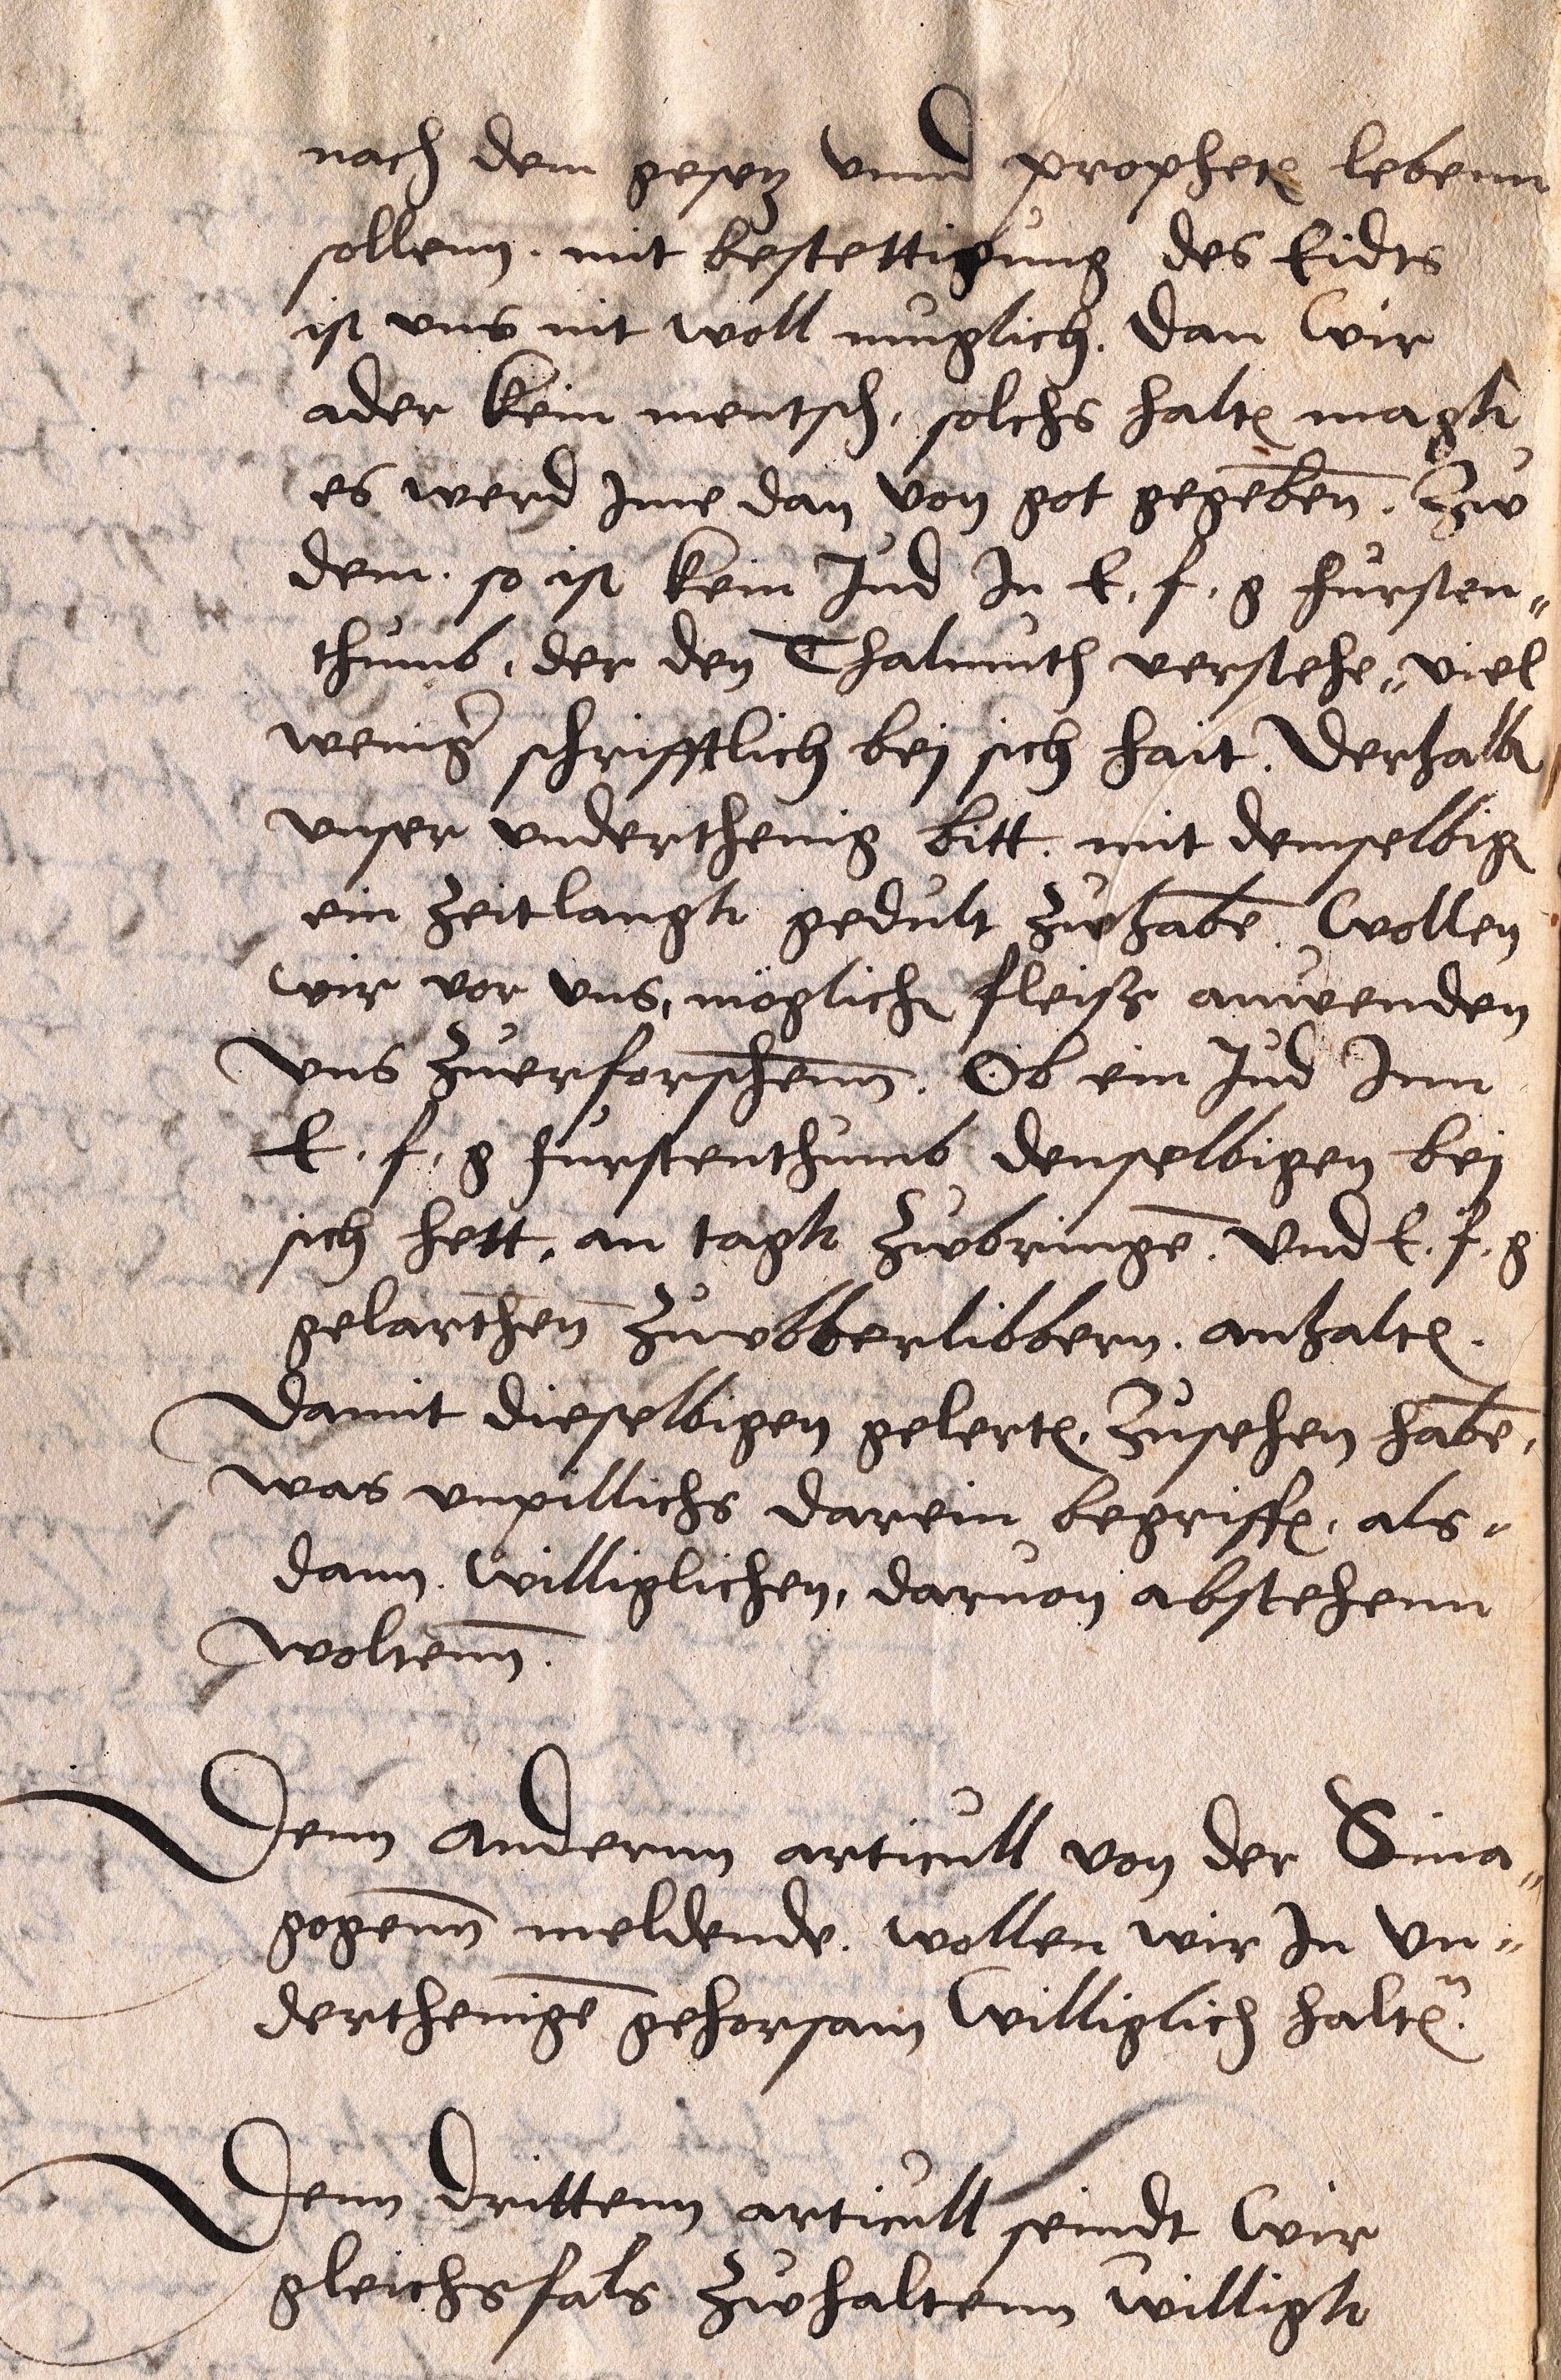 nach dem gesetz vnnd prophetẽ lebenn
sollenn. mit bestettigung des Eidts
ist vns nit woll muglich. dan wir
ader kein mentsch, solchs haltẽ magk
es werd Jme dan von got gegebenn̄. Zw
dem. so ist kein Jud In E. f. g fursten„
thumb, der den Thalmuth verstehe„ viel
weniger schrifftlich bej sich hait. Derhalb
vnser vnderthenig bitt. mit demselbigẽ
ein zeitlangk gedult zwhabē. wollen
wir vor vns, möglichẽ fleisz anwenden
vns zuerforschenn̄. Ob ein Jud Inn
E. f. g furstenthumb denselbigen bej
sich hett, an tagk zwbringē. vnd E. f. g
gelarthen̄ zuvbberlibbern. anhaltẽ.
Damit dieselbigen gelertẽ, zusehen habē,
was vnpillichs darein begriffẽ, als„
dann. williglichen, daruon abstehenn
woltenn̄.
Denn andernn articull von der Sina„
gogenn̄ meldende. wollen wir In vn„
derthenigē gehorsam williglich haltẽn.
Denn drittenn articull seindt wir
gleichsfals zwhaltenn willigk